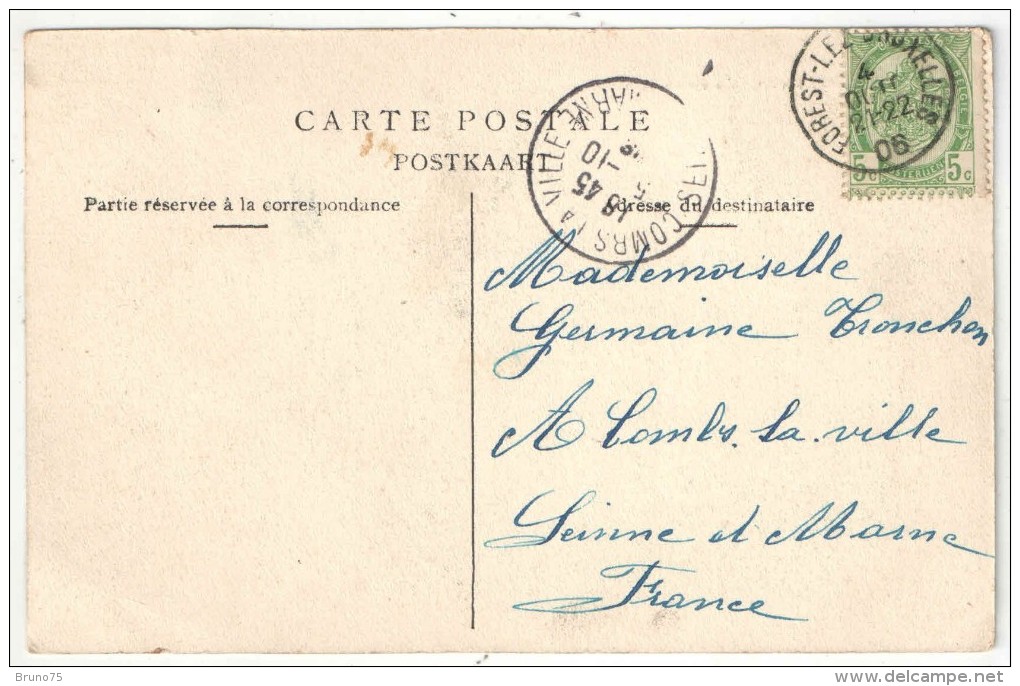 CARTE POSTALE
POSTKAART
Partie réservée à la correspondance
Adresse du destinataire
FOREST-LEZ-BRUXELLES
21-22
06
BELGIQUE
5c 5c
COMBS LA VILLE
MARNE
18 45
5 -10
Mademoiselle
Germaine Tronchon
A Combs. la. ville
Seinne et Marne
France
Bruno75
www.delcampe.net